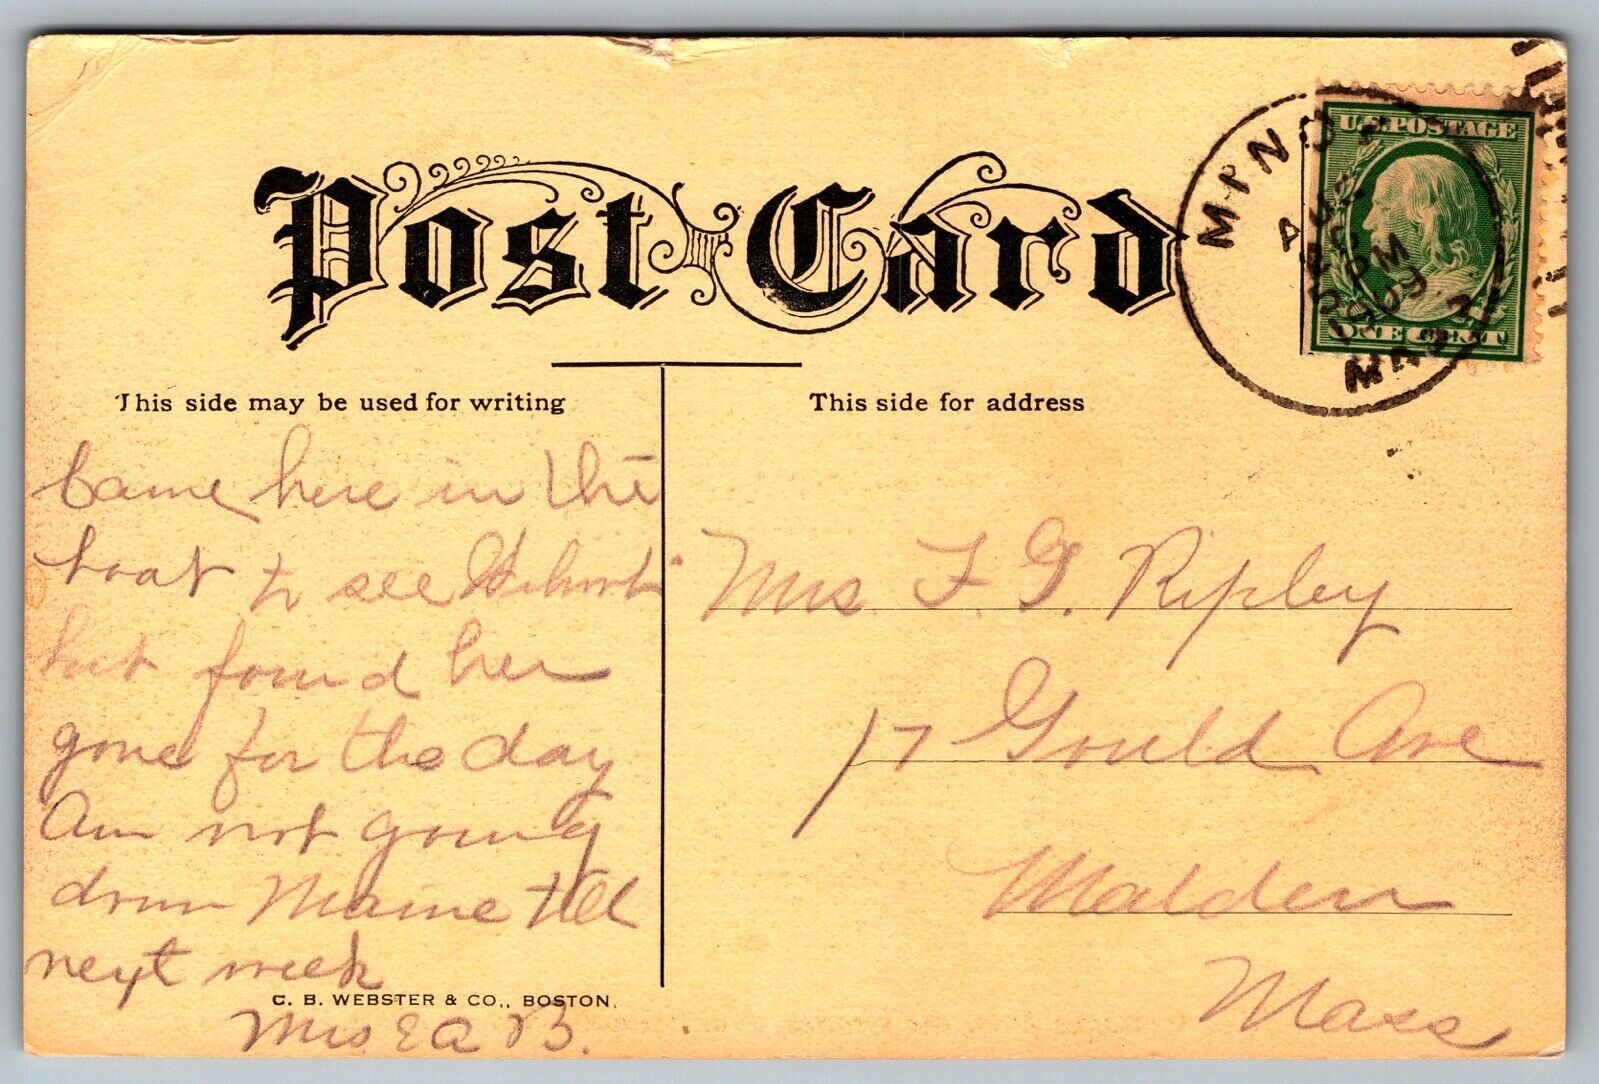 Post Card
U.S. POSTAGE
ONE CENT
AUG
PM
1909
MASS
This side may be used for writing
This side for address
Came here in the
boat to see
but found her
gone for the day
Am not going
down Maine till
next week
Mrs E A B.
C. B. WEBSTER & CO., BOSTON.
Mrs F. G. Ripley
17 Gould Ave
Malden
Mass